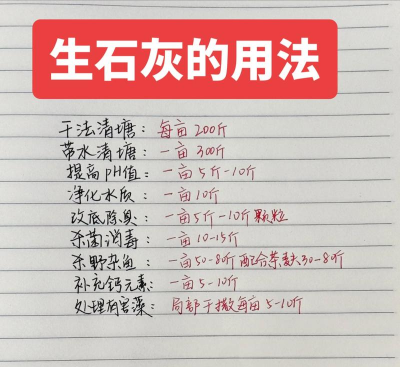 生石灰的用法
干法清塘：每亩200斤
带水清塘：一亩300斤
提高PH值：一亩5斤-10斤
净化水质：一亩10斤
改底除臭：一亩5斤-10斤颗粒
杀菌消毒：一亩10-15斤
杀野杂鱼：一亩50-80斤配合茶麸30-80斤
补充钙元素：一亩5-10斤
处理有害藻：局部干撒每亩5-10斤